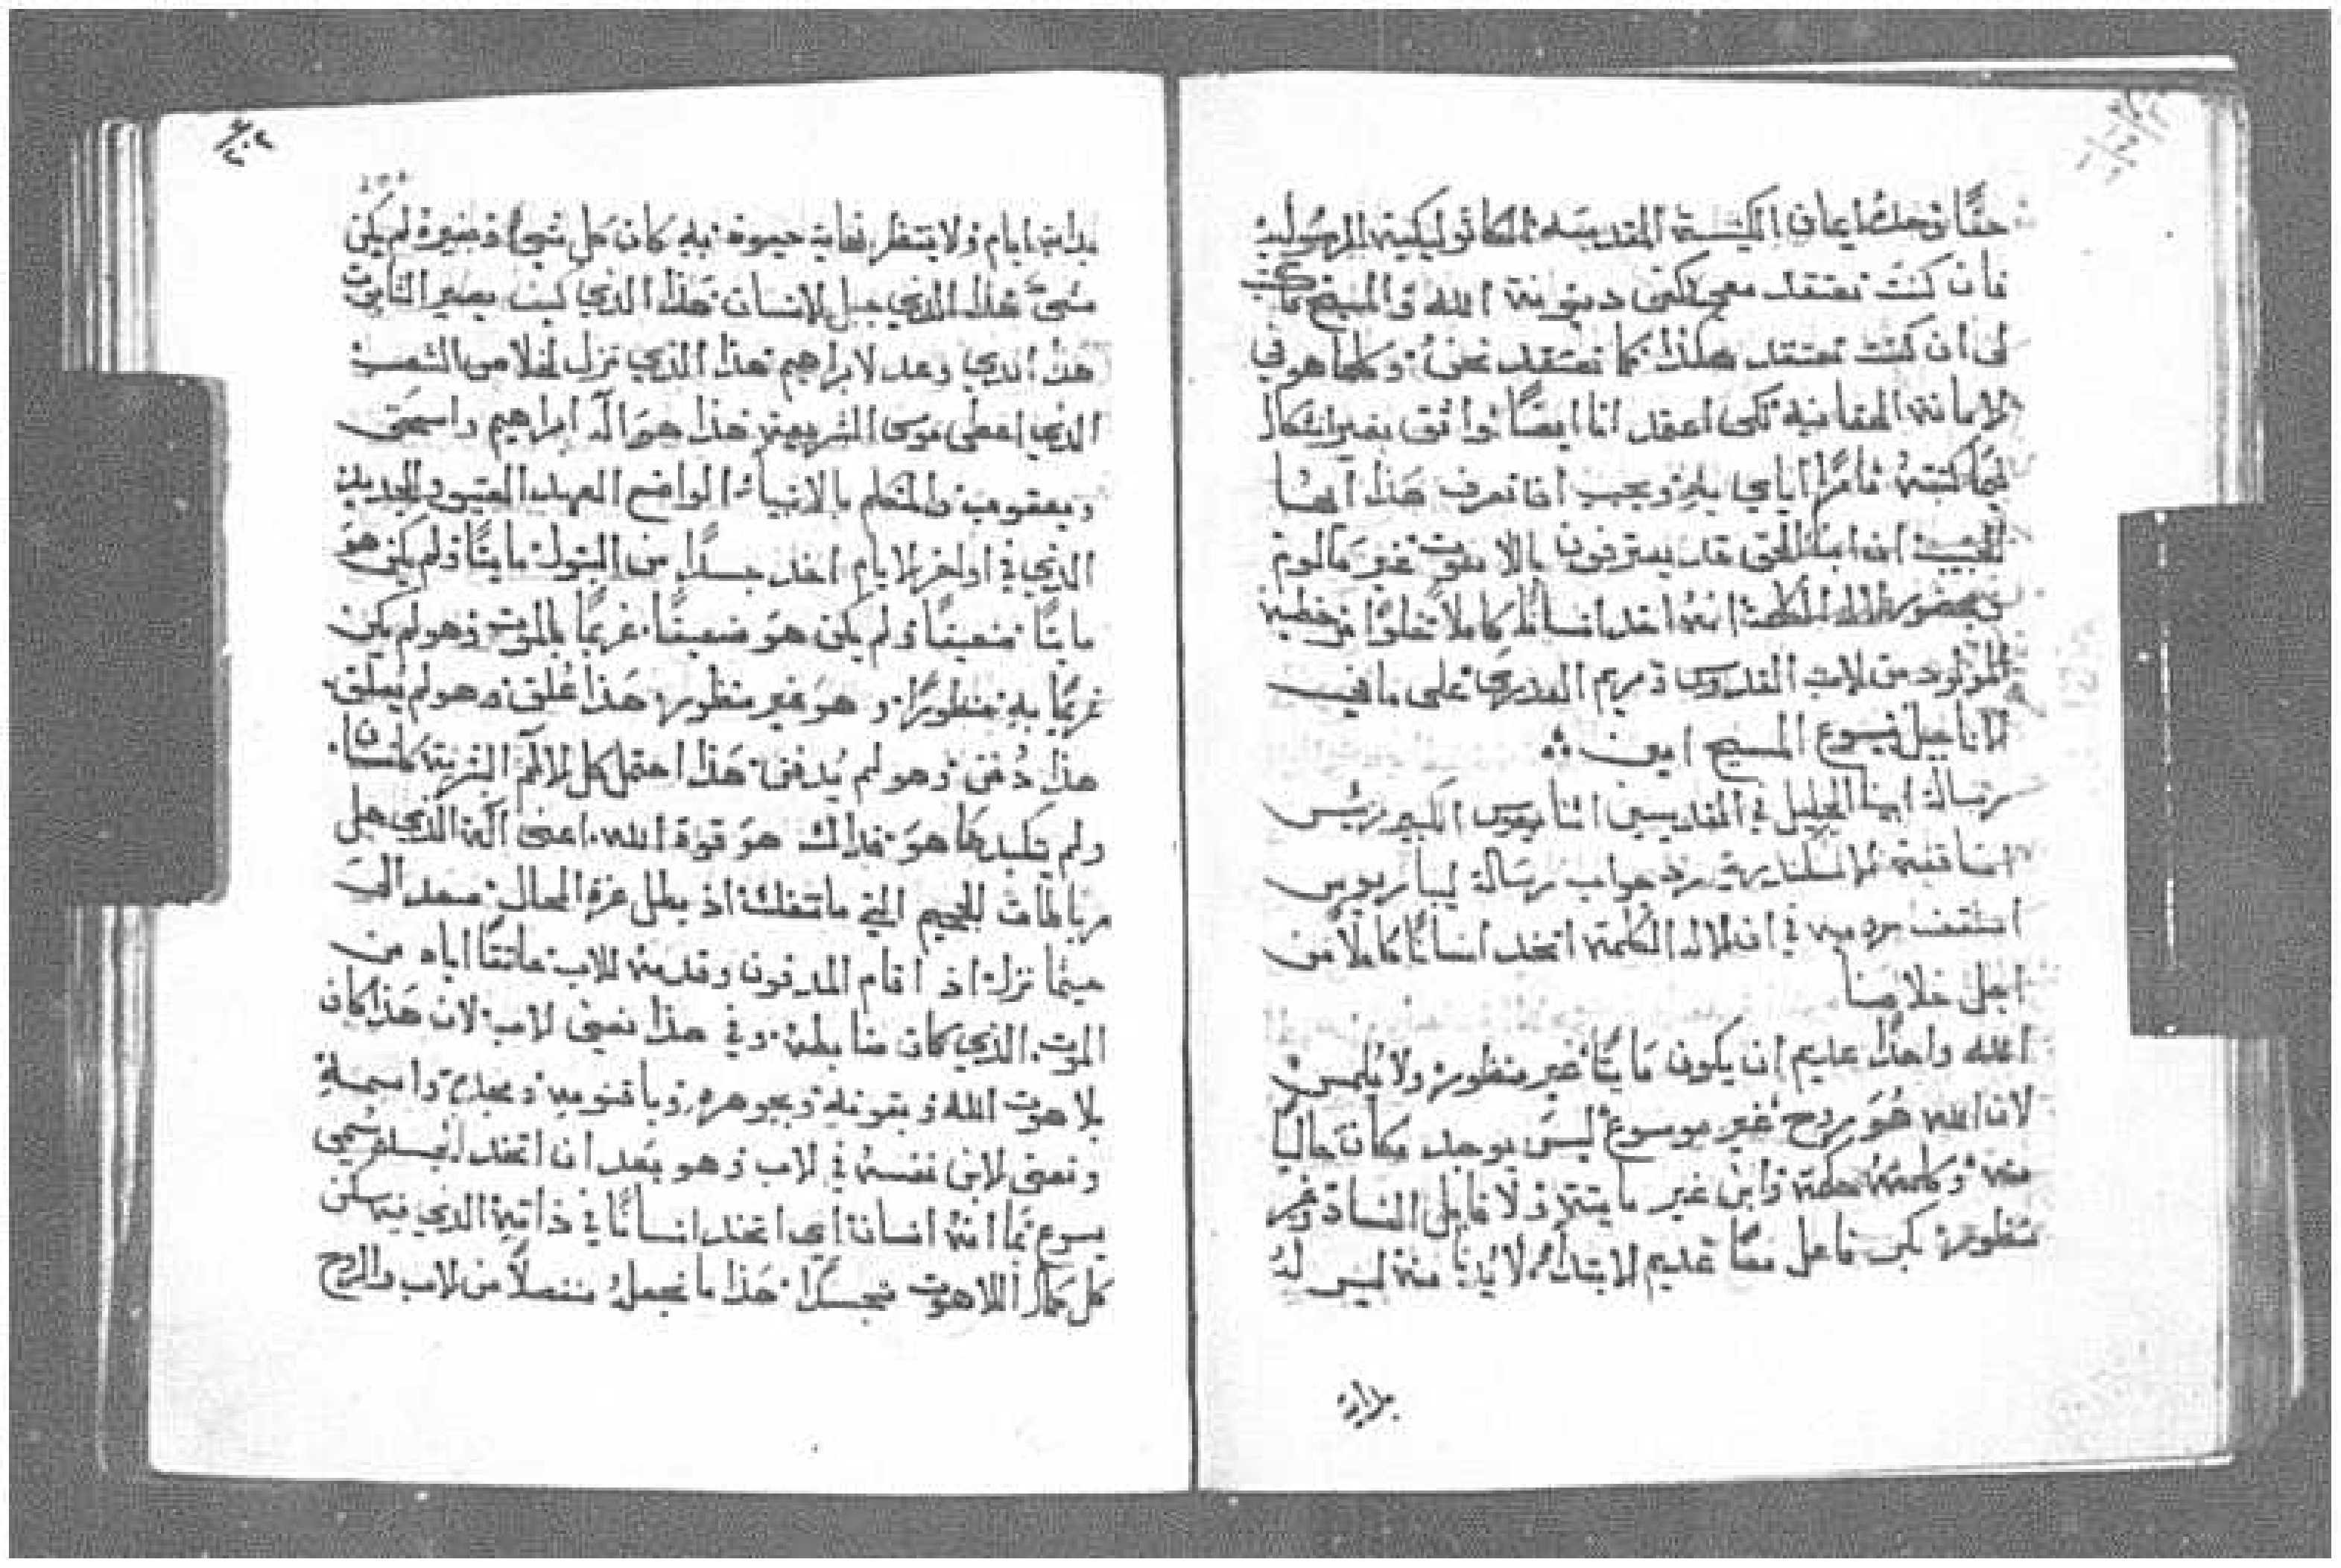 حقًا وهذا ايمان الكنيسة المقدسه الكاثوليكية الرسولية
فان كنت تعتقد معي لكن دينونة الله والمسيح فاكتب
لى ان كنت تعتقد هكذا كما نعتقد نحن وكلما هو في
الامانة الحقانيه لكى اعتقد انا ايضًا واثق بغير اشكال
فيما كتبته امرًا اياي به ويجب ان نعرف هذا ايها
الحبيب ان ابناء الحق قد يعترفون باللاهوت غير مالوم
وبحضور الاله الكلمة انه اخذ انسانًا كاملاً خلوًا من خطية
المولود من الاب القدوس ومريم العذرى على ما في
الاناجيل يسوع المسيح امين
رسالة ابينا الجليل في القديسين اثناسيوس الكبير رئيس
اساقفة الاسكندرية رد جواب رسالة ليباريوس
اسقف روميه في ان الاله الكلمة اتخذ انسانًا كاملاً من
اجل خلاصنا
الله واحدًا عديم ان يكون مايتًا غير منظور ولا يُلمس
لان الله هُوَ روح غير موسوع ليس يوجد مكان خاليًا
منه وكلمته حكمة وابن غير مايتة ولا قابل الفساد وغير
منظور لكن فاعل معًا عديم الابتداء لا يُدنا منه ليس لهُ
بداية
٢٠٢
بداية ايام ولا ينتظر نهاية حيوة به كان كل شئ وبغيره لم يكن
شئ هذا الذي جبل الانسان هذا الذي كيف يصير التابوت
هذا الذي وعد لابراهيم هذا الذي نزل لخلاص الشعب
الذي اعطى موسى الشريعة هذا هو اله ابراهيم واسحق
ويعقوب والمتكلم بالانبياء الواضع العهد العتيق والجديد
الذي في اواخر الايام اخذ جسدًا من البتول مايتًا ولم يكن هو
مايتًا ضعيفًا ولم يكن هو ضعيفًا غريمًا بالموت وهو لم يكن
غريمًا به منظورًا وهو غير منظور هذا عُلق وهو لم يُعلق
هذا دُفن وهو لم يُدفن هذا احتمل كل الالام البشرية كانسان
ولم يكبدها هو فذاك هو قوة الله اعنى اله الذي حل
رباطات الجحيم التي ما تنفك اذ بطل عزة المحال صعد الى
حيثما نزل اذ اقام المدفون وقدمه للاب عاتقًا اياه من
الموت الذي كان ضابطه وفي هذا نعنى الاب لان هذا كان
بلاهوت الله وبقوته وبجوهره وباقنوميه وبمجده واسمه
ونعنى الابن نفسه في الاب وهو بعد ان اتخذ الجسد سُمى
يسوع ثم انه انسان اى اتخذ انسانًا في ذاته الذي فيه سكن
كل كمال اللاهوت متجسدًا هذا ما نجعله منفصلاً من الاب والروح